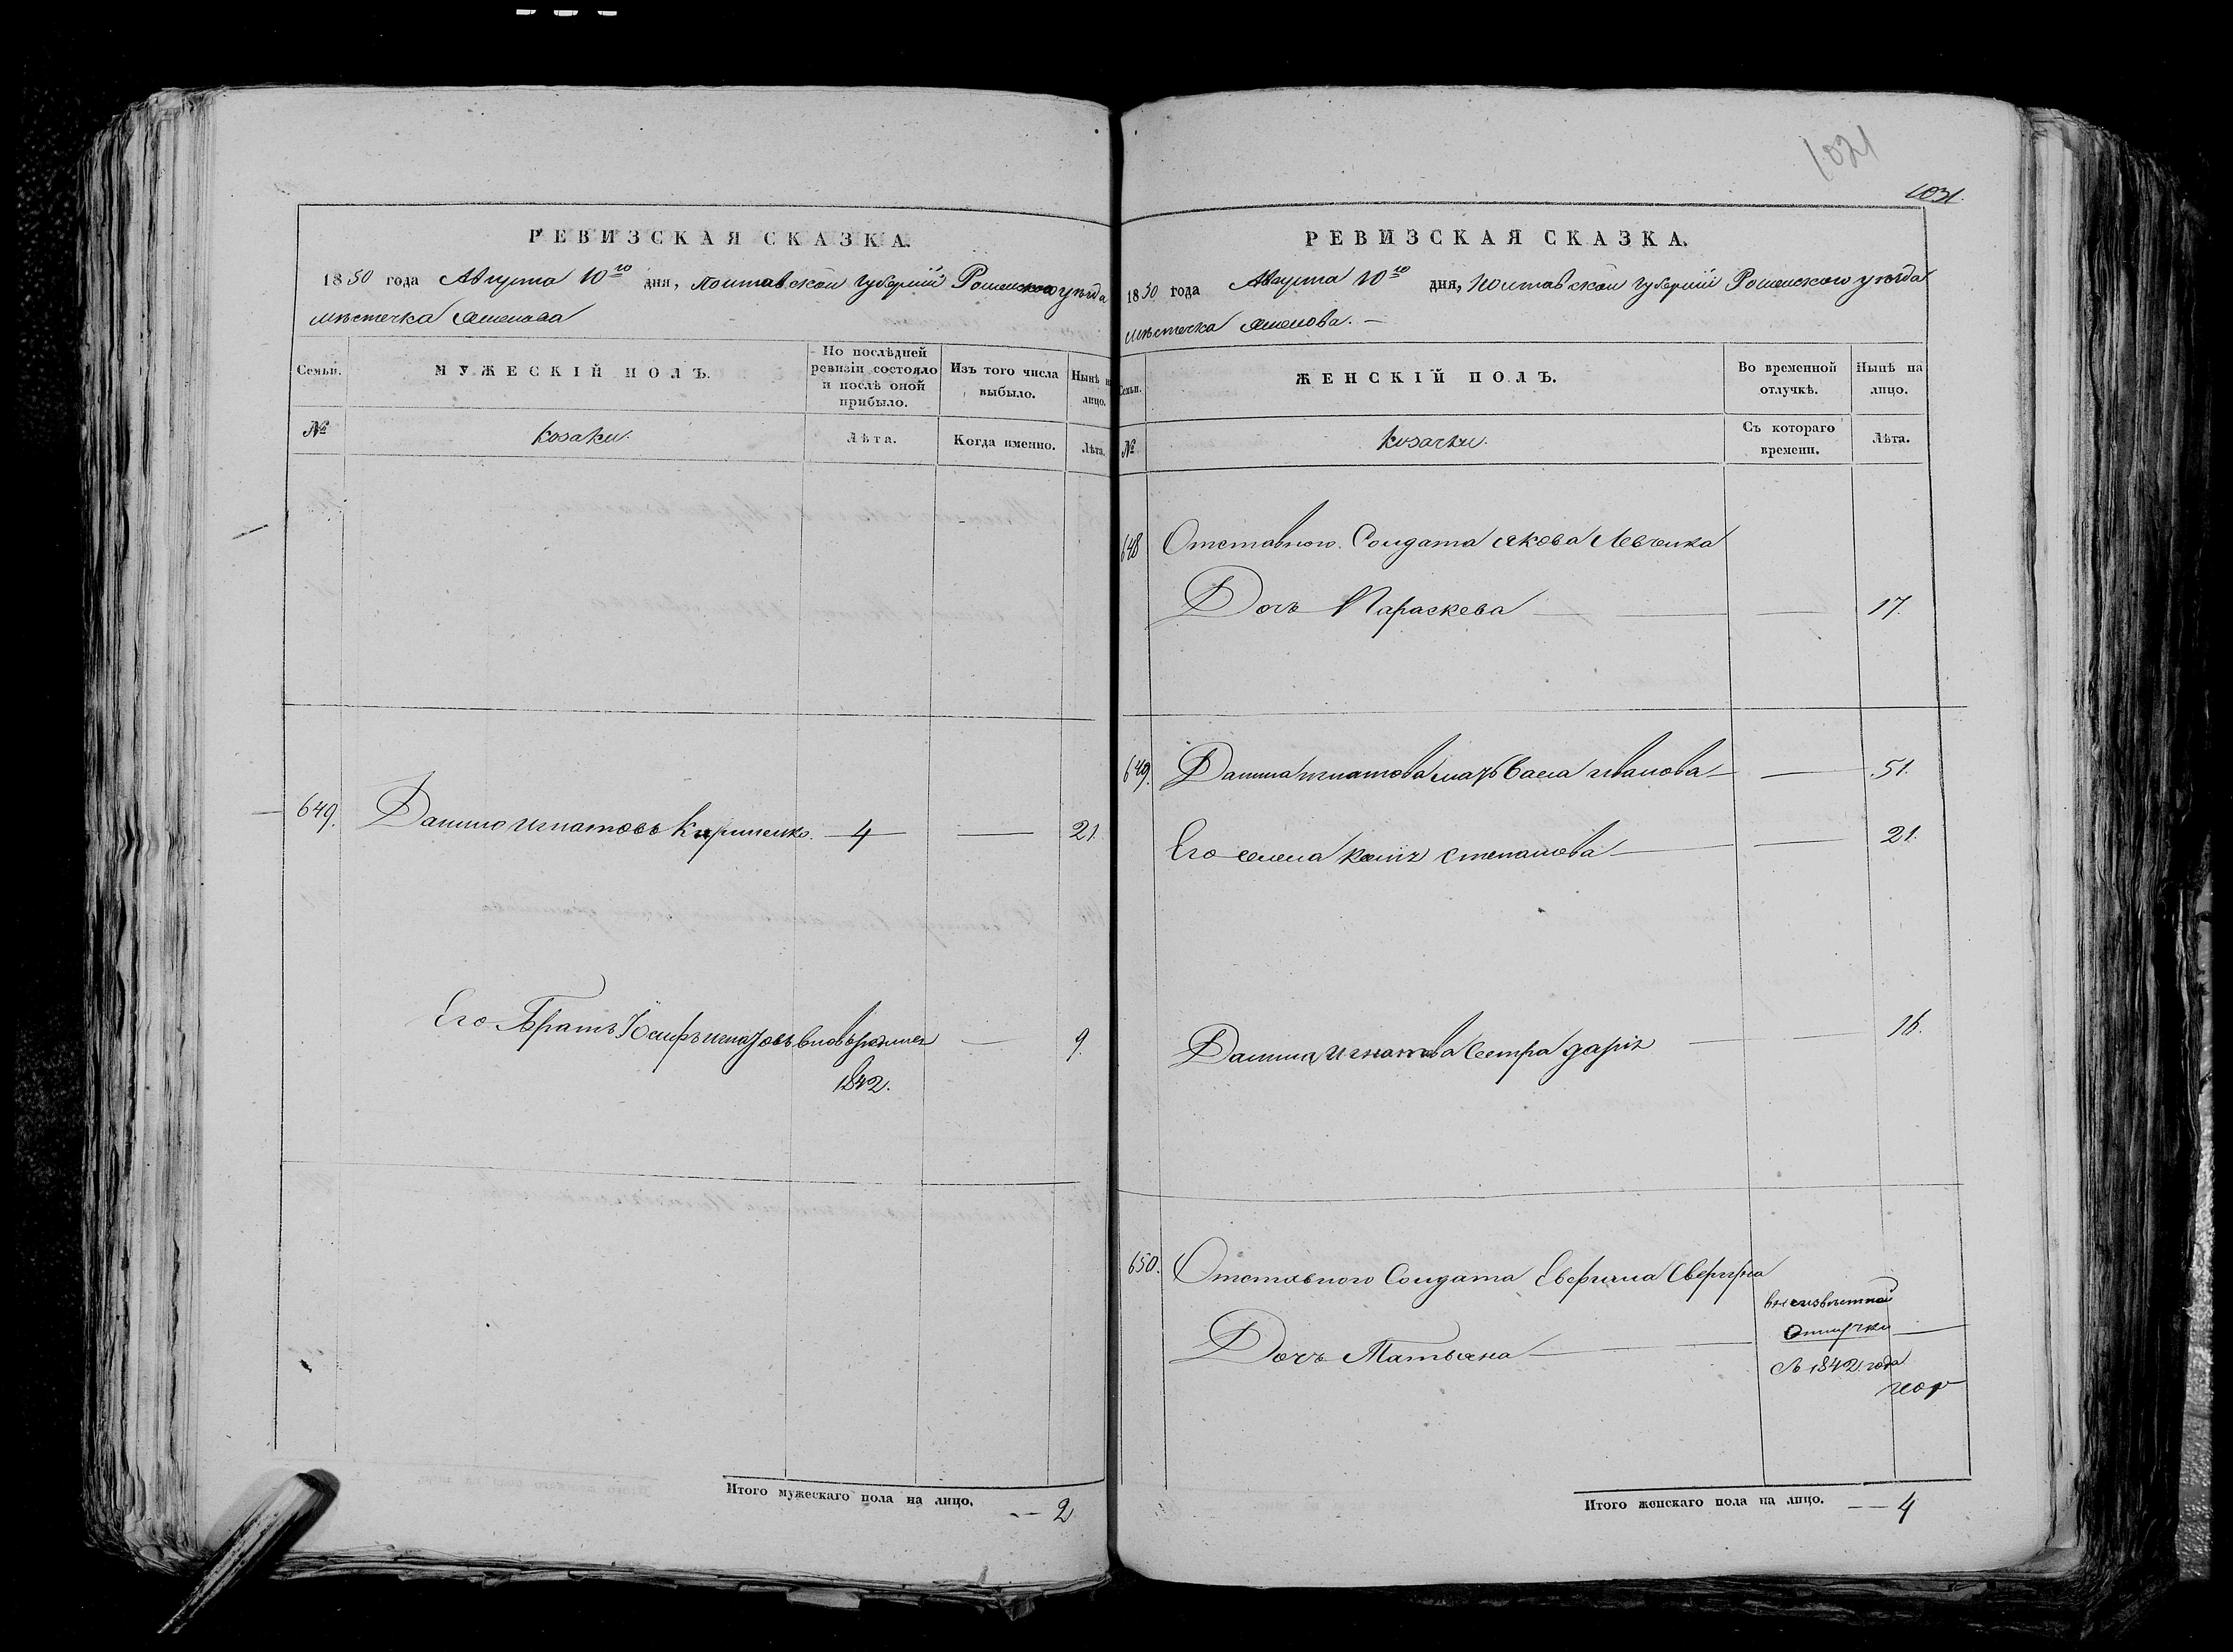 РЕВИЗСКАЯ СКАЗКА.
1850 года Августа 10го дня, Полтавской Губерніи Роменского уезда
местечка Смелова
Семьи.
МУЖЕСКІЙ ПОЛЪ.
По послѣдней ревизіи состояло и послѣ оной прибыло.
Изъ того числа выбыло.
Нынѣ на лицо.
№
Козаки.
Лѣта.
Когда именно.
Лѣта.
649. Данило Игнатовъ Кириленко. 4 — 21.
Его Братъ Іосифъ Игнатовъ вновьрожден — 9.
1842.
Итого мужескаго пола на лицо. — 2
1021
1031.
РЕВИЗСКАЯ СКАЗКА.
1850 года Августа 10го дня, Полтавской Губерніи Роменского уезда
местечка Смелова. —
Семьи.
ЖЕНСКІЙ ПОЛЪ.
Во временной отлучкѣ.
Нынѣ на лицо.
№
Козачки.
Съ котораго времени.
Лѣта.
648 Отставного Солдата Якова Левченка
Дочь Параскева — 17.
649. Данила Игнатова мать Васса Иванова — 51.
Его жена Степанова — 21.
Данила Игнатова Сестра Дарія — 16.
650. Отставного Солдата
в неизвестной
Отлучки
Дочь Татьяна —
Съ 1842 года
Итого женскаго пола на лицо. — 4